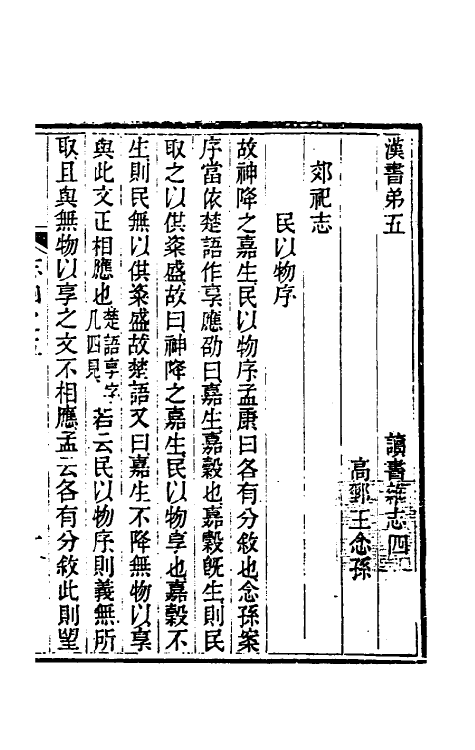 漢書弟五
讀書雜志四
高郵王念孫
郊祀志
民以物序
故神降之嘉生民以物序孟康曰各有分敘也念孫案
序當依楚語作享應劭曰嘉生嘉穀也嘉穀旣生則民
取之以供粢盛故曰神降之嘉生民以物享也嘉穀不
生則民無以供粢盛故楚語又曰嘉生不降無物以享
與此文正相應也楚語享字凡四見若云民以物序則義無所
取且與無物以享之文不相應孟云各有分敘此則望